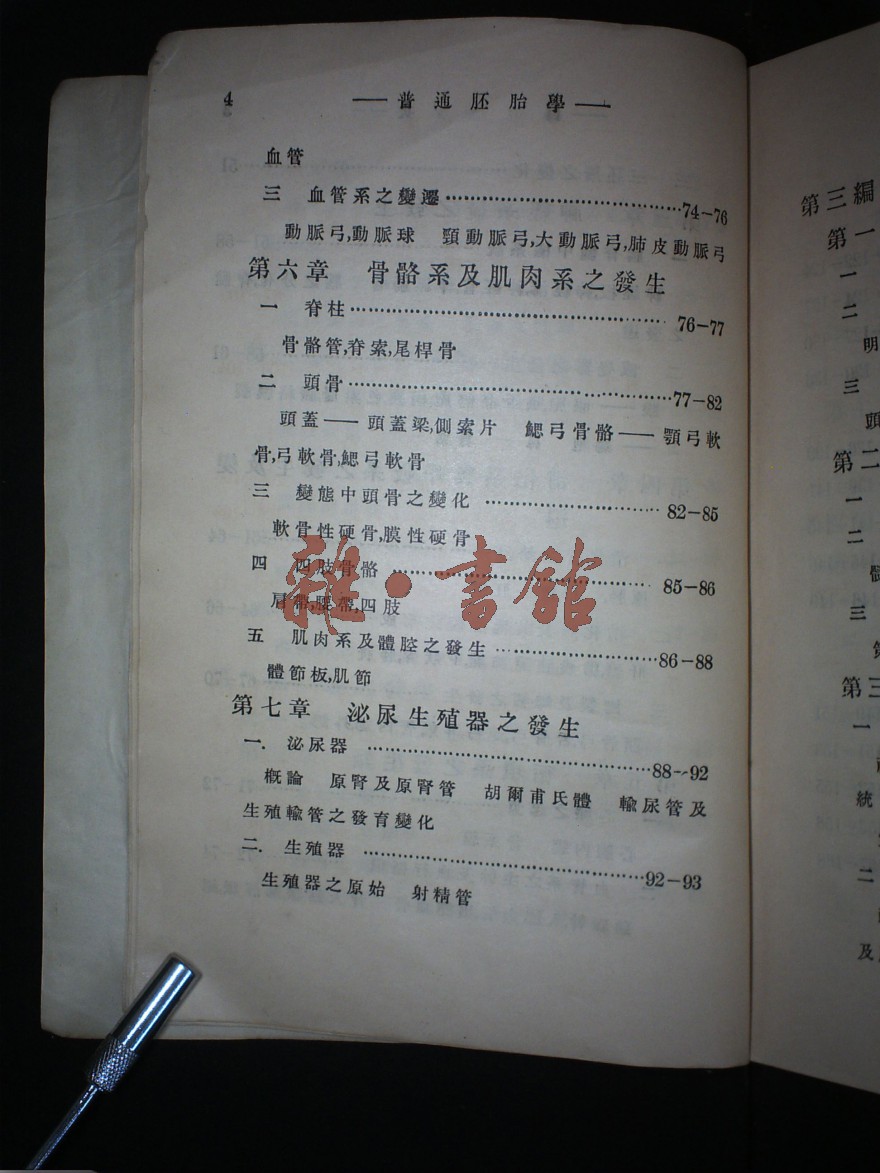 4 —— 普通胚胎學 ——
血管
三 血管系之變遷……………………………74–76
動脈弓,動脈球 頸動脈弓,大動脈弓,肺皮動脈弓
第六章 骨骼系及肌肉系之發生
一 脊柱……………………………………… 76–77
骨骼管,脊索,尾桿骨
二 頭骨………………………………………77–82
頭蓋——頭蓋梁,側索片 鰓弓骨骼——顎弓軟
骨,弓軟骨,鰓弓軟骨
三 變態中頭骨之變化 …………………… 82–85
軟骨性硬骨,膜性硬骨
四 四肢骨骼 ……………………………… 85–86
肩帶,腰帶,四肢
五 肌肉系及體腔之發生 …………………86–88
體節板,肌節
第七章 泌尿生殖器之發生
一. 泌尿器 …………………………………88–92
概論 原腎及原腎管 胡爾甫氏體 輸尿管及
生殖輸管之發育變化
二. 生殖器 …………………………………92–93
生殖器之原始 射精管
雜·書館
第三編
第一
一
二
明
三
頭
第二
一
二
三
第
第三
一
統
二
及